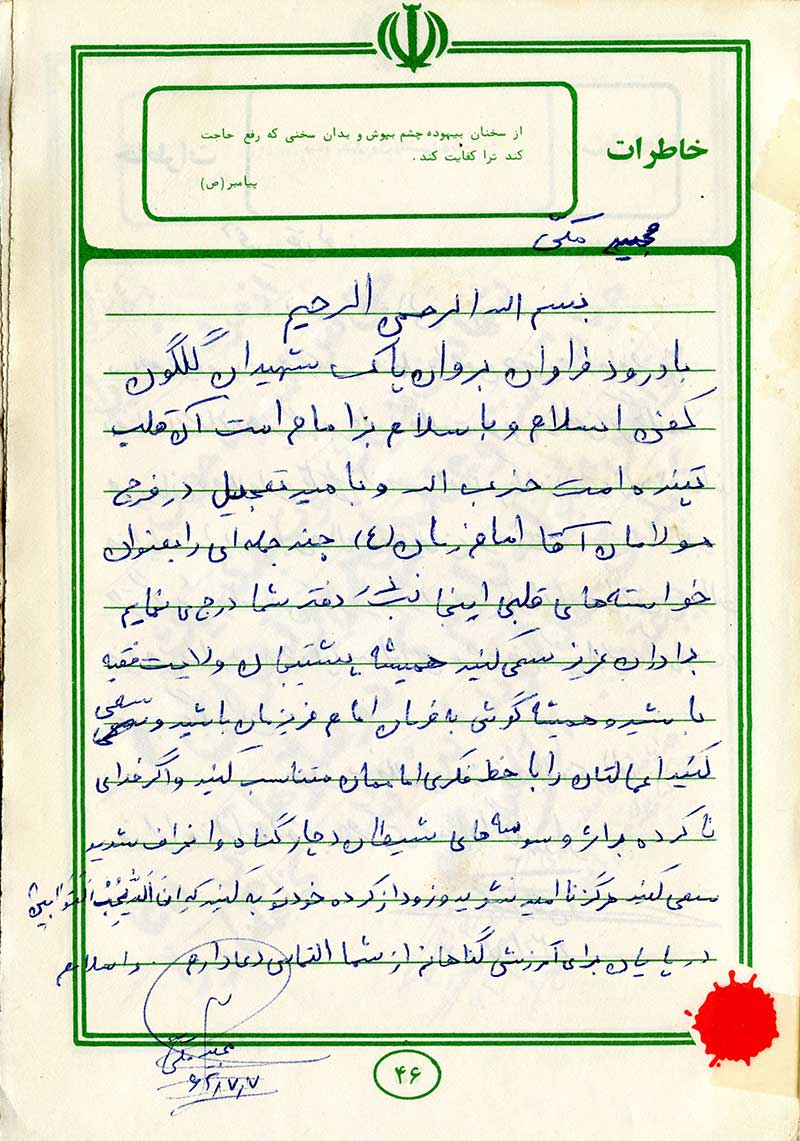 از سخنان بیهوده چشم بپوش و بدان سخنی که رفع حاجت
کند ترا کفایت کند .
پیامبر (ص)
خاطرات
مجید مکی
بسم الله الرحمن الرحیم
با درود فراوان بروان پاک شهیدان گلگون
کفن اسلام و با سلام بر امام امت آن قلب
تپنده امت حزب الله و با امید تعجیل در فرج
مولامان آقا امام زمان (ع) چند جمله ای را بعنوان
خواسته های قلبی اینجا دفتر شما درج می نمایم
برادران عزیز سعی کنید همیشه پشتیبان ولایت فقیه
باشید و همیشه گوش به فرمان امام عزیزمان باشید و سعی
کنید اعمالتان را با خط فکری اماممان متناسب کنید و اگر خدای
نا کرده بر اثر وسوسه های شیطان دچار گناه و انحراف شدید
سعی کنید هرگز نا امید نشوید و زود از کرده خود توبه کنید که ان الله یحب التوابین
در پایان برای آمرزش گناهانم از شما التماس دعا دارم . والسلام
مجید مکی
۶۲/۷/۷
۴۶